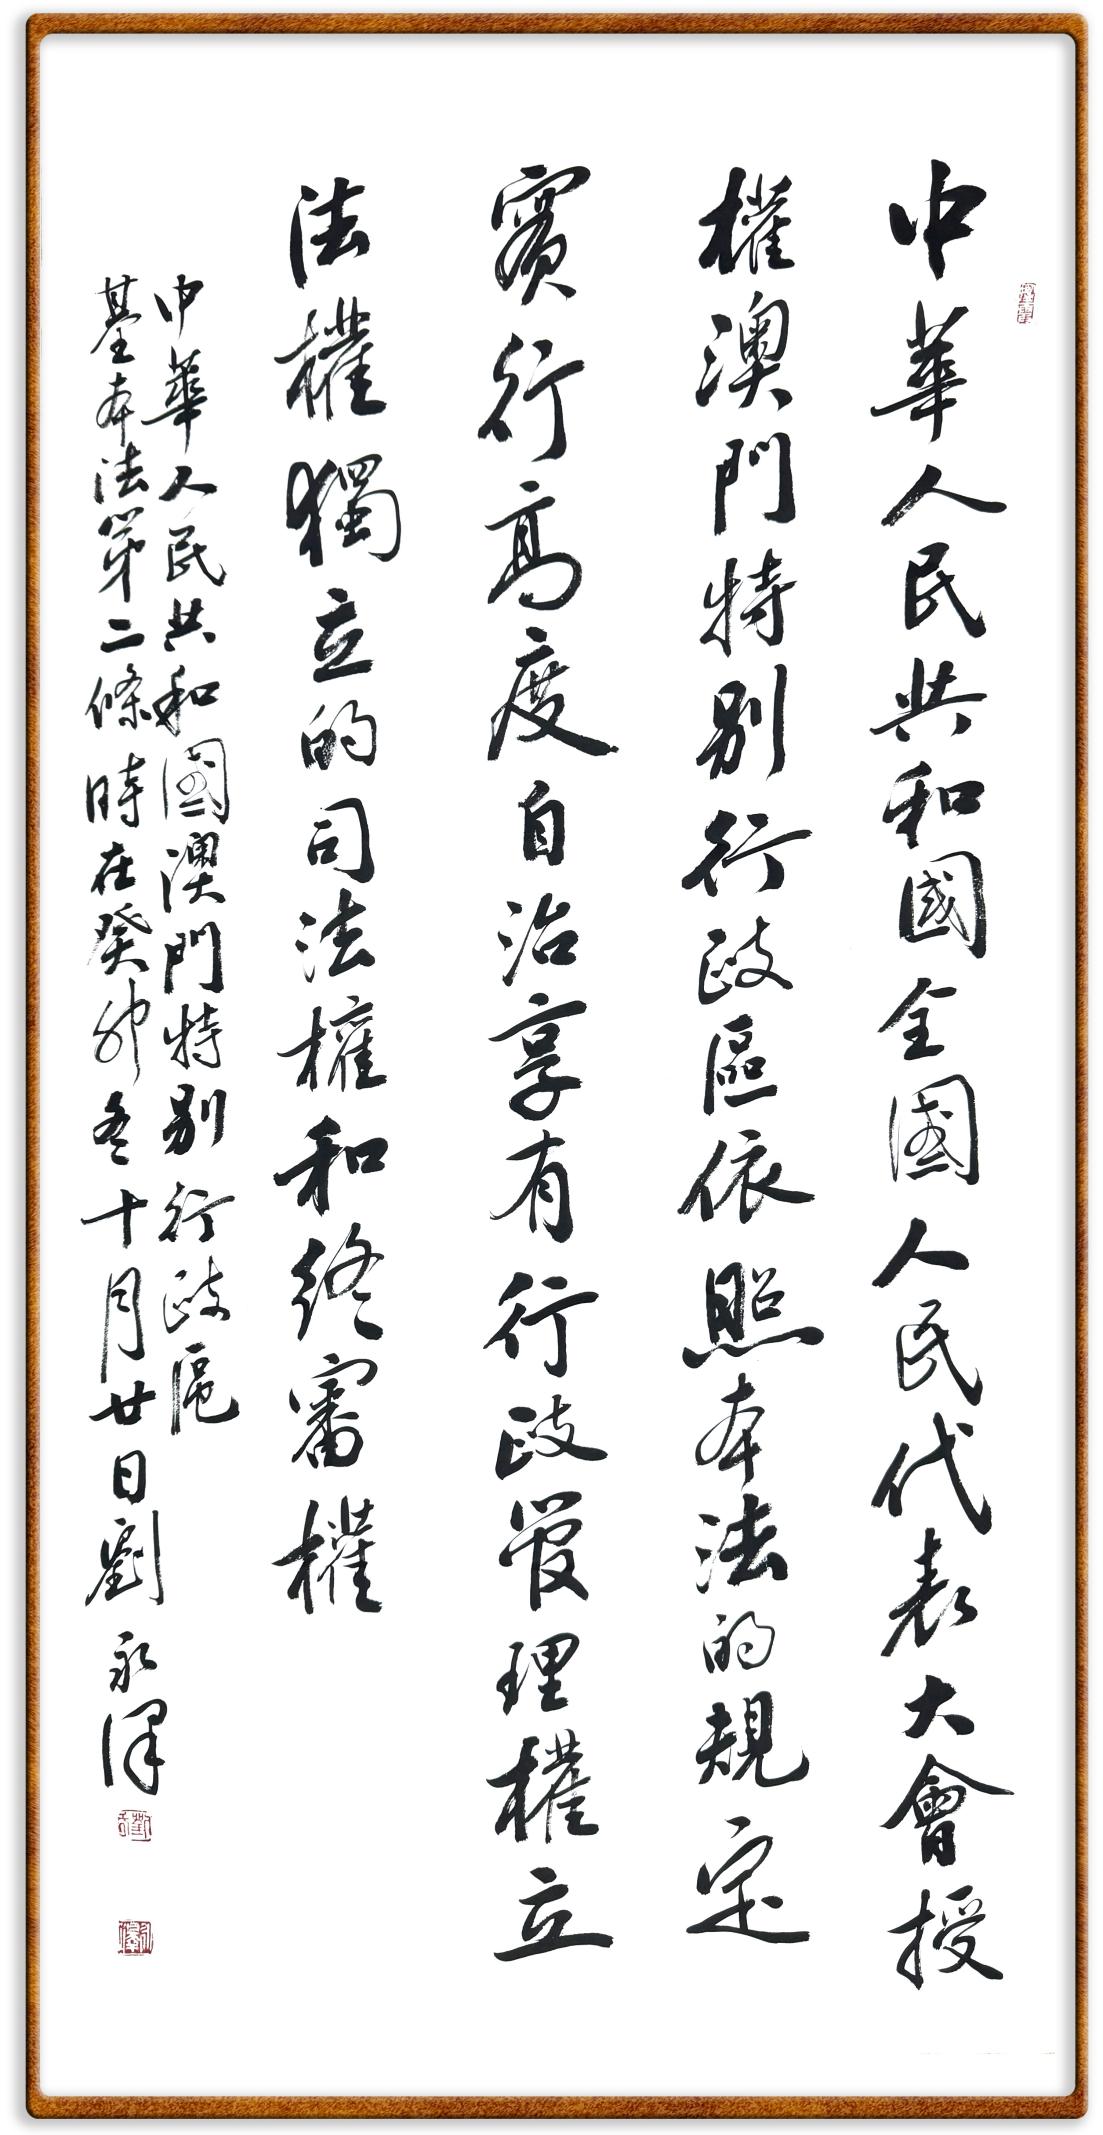 中華人民共和國全國人民代表大會授
權澳門特別行政區依照本法的規定
實行高度自治享有行政管理權立
法權獨立的司法權和終審權
中華人民共和國澳門特別行政區
基本法第二條時在癸卯冬十月廿日劉永澤